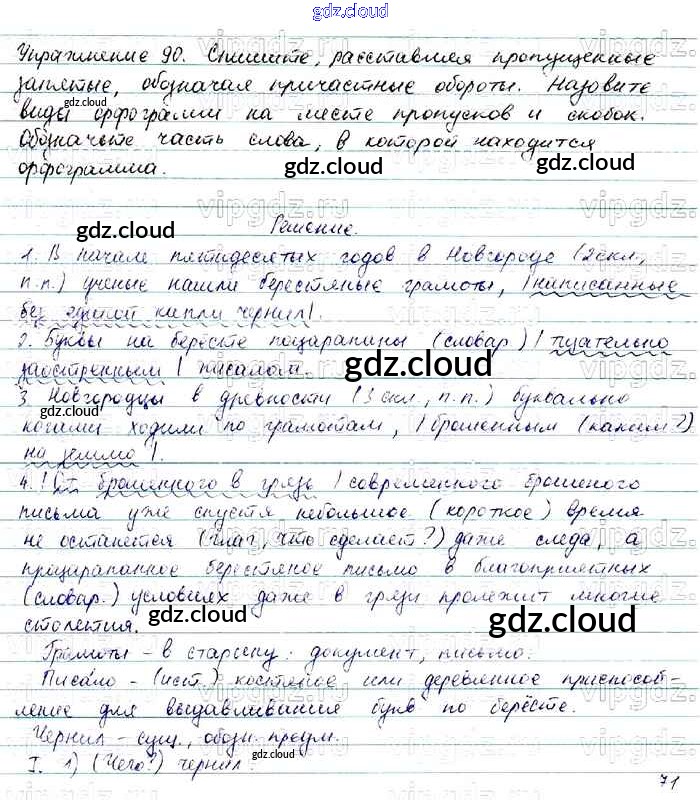 gdz.cloud
Упражнение 90. Спишите, расставляя пропущенные
запятые, обозначая причастные обороты. Назовите
gdz.cloud
виды орфограмм на месте пропусков и скобок.
Обозначьте часть слова, в которой находится
gdz.cloud
орфограмма.
gdz.cloud
gdz.cloud
Решение.
1. В начале пятидесятых годов в Новгороде (2 скл.,
п.п.) ученые нашли берестяные грамоты, |написанные
без единой капли чернил|.
2. Буквы на бересте поцарапины (словар.) | тщательно
заостренным | писалом.
gdz.cloud
3. Новгородцы в древности (3 скл., п.п.) буквально
gdz.cloud
ногами ходили по грамотам, | брошенным (каким?)
на землю |.
4. | От брошенного в грязь | современного брошеного
письма уже спустя небольшое (короткое) время
не останется (глаг., что сделает?) даже следа, а
процарапанное берестяное письмо в благоприятных
(словар.) условиях даже в грязи пролежит многие
gdz.cloud
gdz.cloud
столетия.
Грамоты - в старину: документ, письмо.
Писало - (ист.) костяное или деревянное приспособ-
ление для выдавливания букв по бересте.
gdz.cloud
Чернил - сущ., обозн. предм.
gdz.cloud
I. 1) (Чего?) чернил.
71